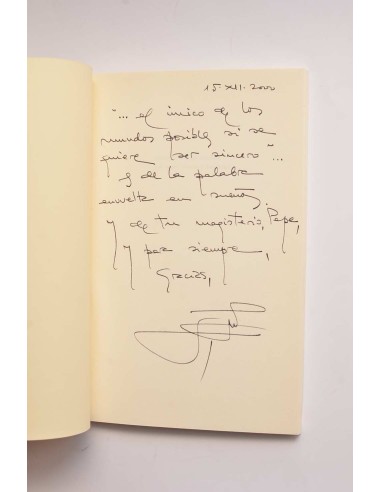 15-XII-2000
"... el único de los
mundos posibles si se
quiere ser sincero"...
y de la palabra
envuelta en sueños.
Y de tu magisterio, Pepe,
y por siempre,
Gracias,